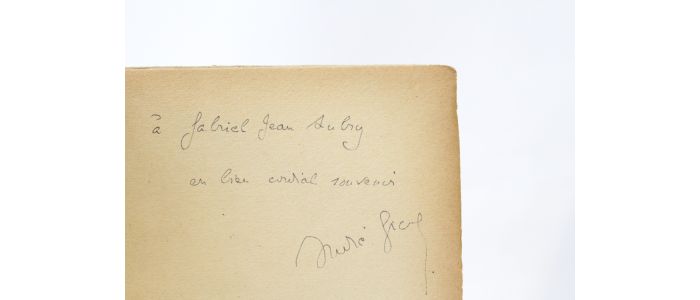 à Gabriel Jean Aubry
en bien cordial souvenir
André